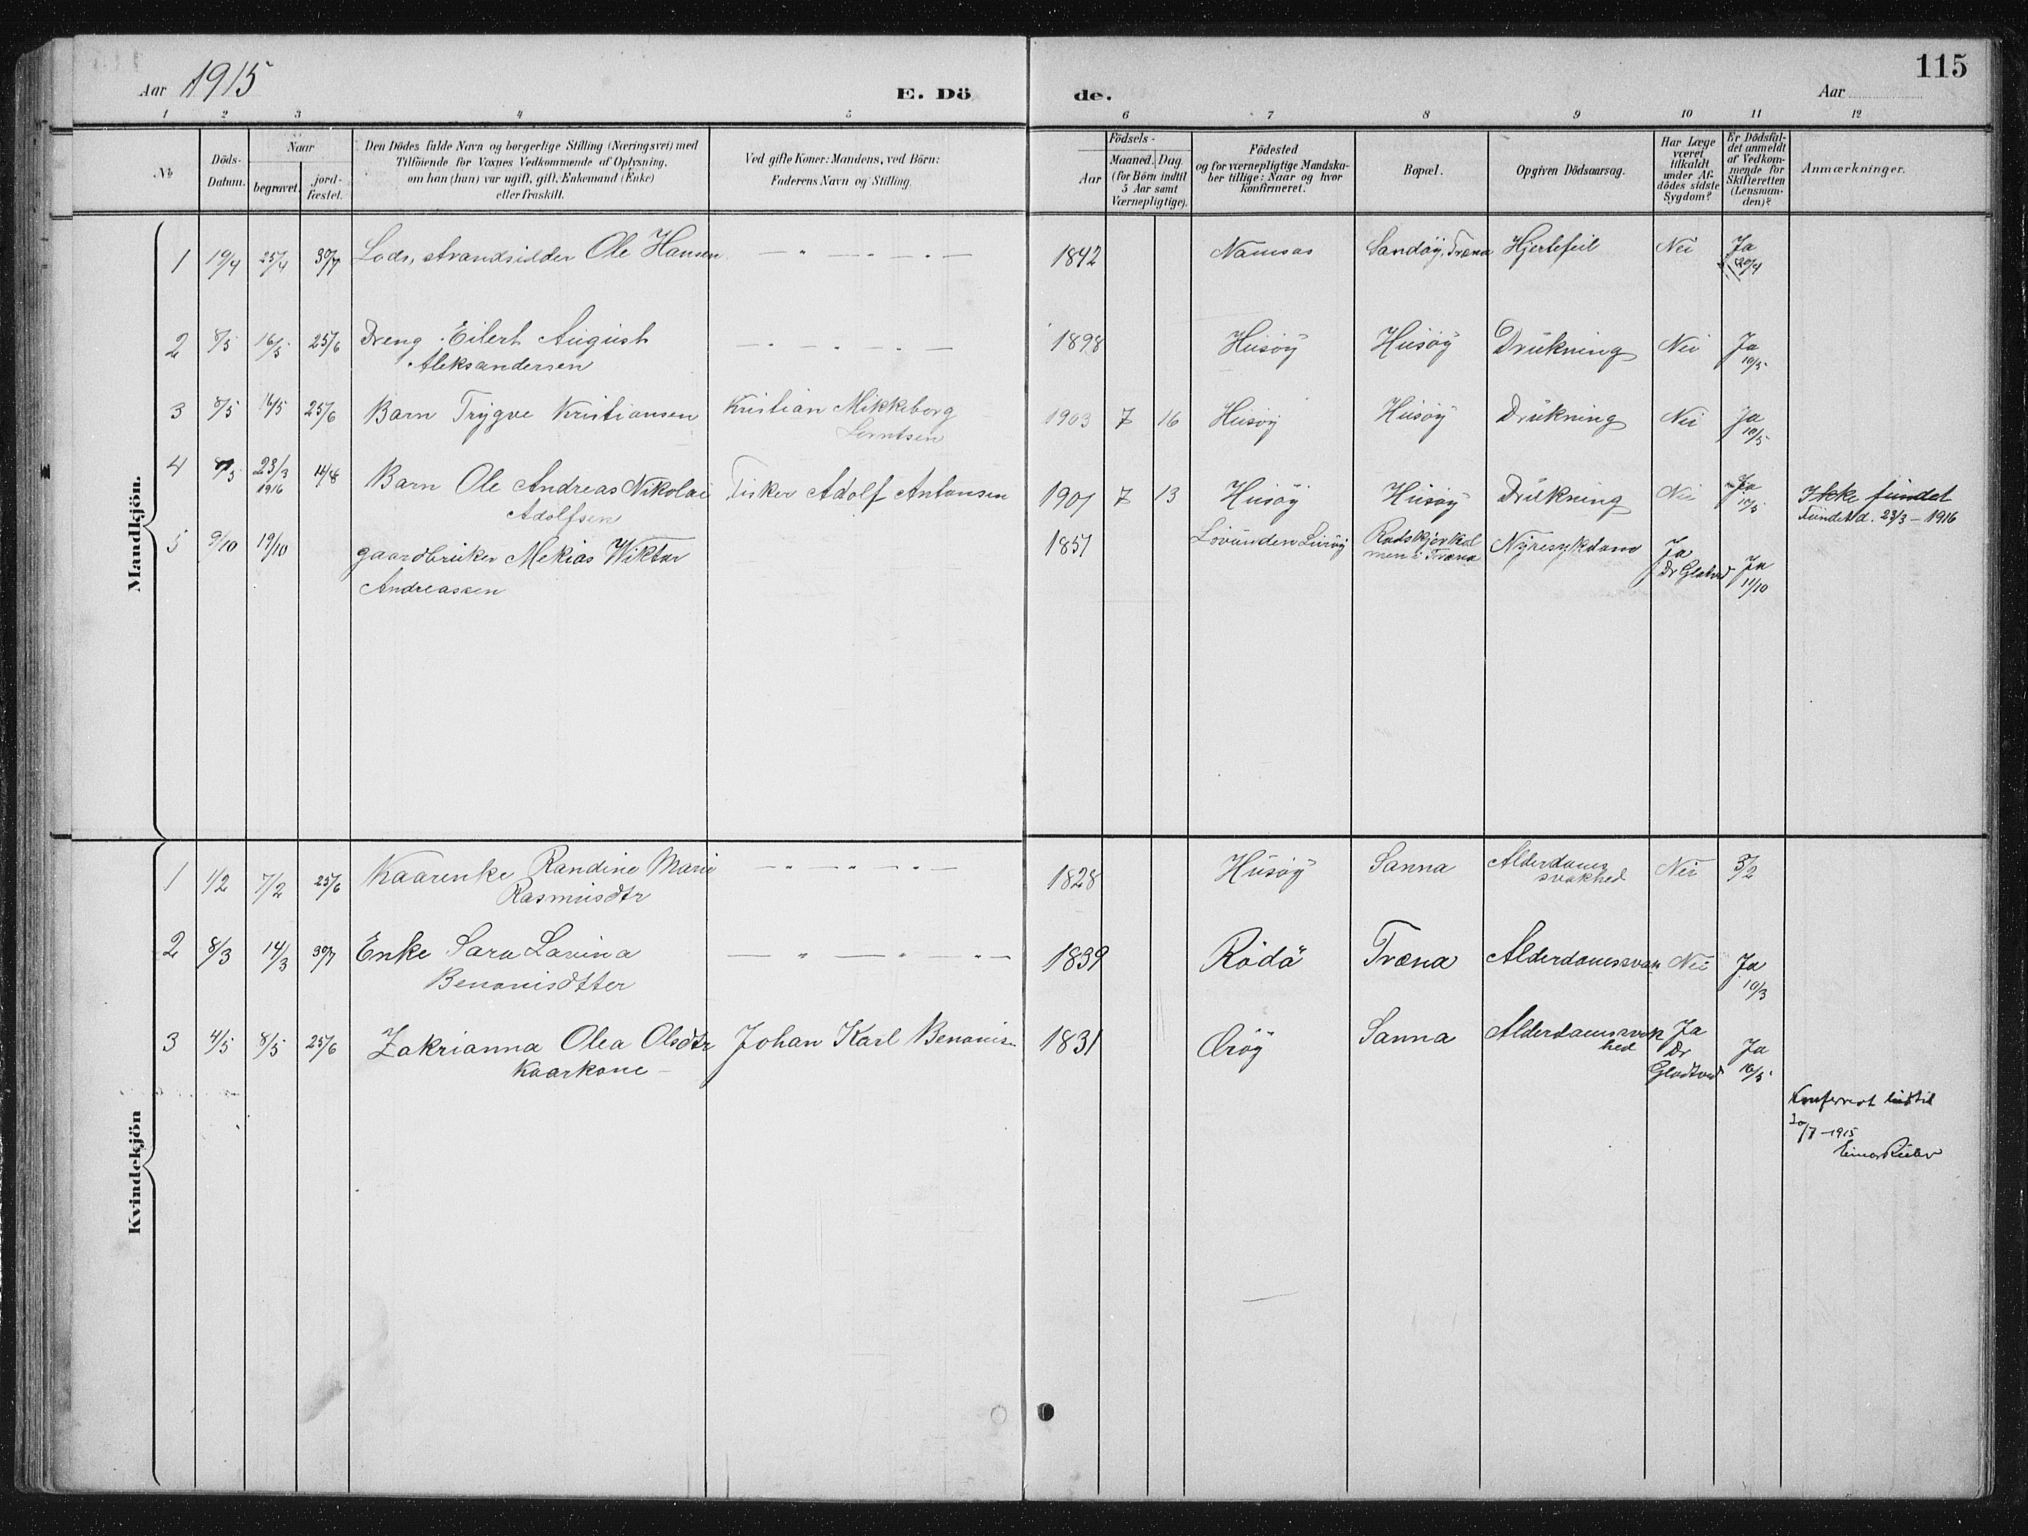 115
Aar 1915
E. Dö de.
Aar
1 2 3 4 5 6 7 8 9 10 11 12
No
Döds-Datum.
Naar
begravet.
jord-fæstet.
Den Dödes fulde Navn og borgerlige Stilling (Næringsvei) med
Tilföiende for Voxnes Vedkommende af Oplysning,
om han (hun) var ugift, gift, Enkemand (Enke)
eller fraskilt.
Ved gifte Koner: Mandens, ved Börn:
Faderens Navn og Stilling.
Födsels-
Aar
Maaned. Dag
(for Börn indtil
5 Aar samt
Værnepligtige).
Födested
og for værnepligtige Mandska-
ber tillige: Naar og hvor
konfirmeret.
Bopæl.
Opgiven Dödsaarsag.
Har Læge
været
tilkaldt
under Af-
dödes sidste
Sygdom?
Er Dödsfal-
det anmeldt
af Vedkom-
mende for
Skifteretten
(Lensman-
den)?
Anmærkninger.
Mandkjön.
1 19/4 25/4 30/7 Lods, strandsidder Ole Hansen — „ — „ — 1842 Namsos Sandöy, Træna Hjertefeil Nei Ja 20/4
2 8/5 16/5 25/6 Dreng Eilert August — „ — „ — 1898 Husöy Husöy Drukning Nei Ja 10/5
Aleksandersen
3 8/5 16/5 25/6 Barn Trygve Kristiansen Kristian Mikkeborg 1903 7 16 Husöy Husöy Drukning Nei Ja 10/5
Lorntsen
4 8/5 23/3 1916 11/8 Barn Ole Andreas Nikolai Fisker Adolf Antonsen 1901 7 13 Husöy Husöy Drukning Nei Ja 10/5 Ikke fundet
Adolfsen Fundet d. 23/3 – 1916
5 9/10 19/10 gaardbruker Mekias Wiktor 1857 Lovunden Luröy Nyresykdom Ja
Andreassen men i Træna Dr Ja 11/10
Kvindekjön
1 1/2 7/2 25/6 Kaarenke Randine Marie — „ — „ — 1828 Husöy Sanna Alderdoms Nei 3/2
Rasmusdtr svakhed
2 8/3 14/3 30/7 Enke Sara Lavina — „ — „ — 1839 Rödö Træna Alderdomssvak Nei Ja 10/3
Benonisdtter
3 4/5 8/5 25/6 Zakrianna Olea Olsdtr Johan Karl Benonis- 1831 Sanna Alderdomssvak Ja
Kaarkone – hed Dr Ja
Konferert indtil
–1915